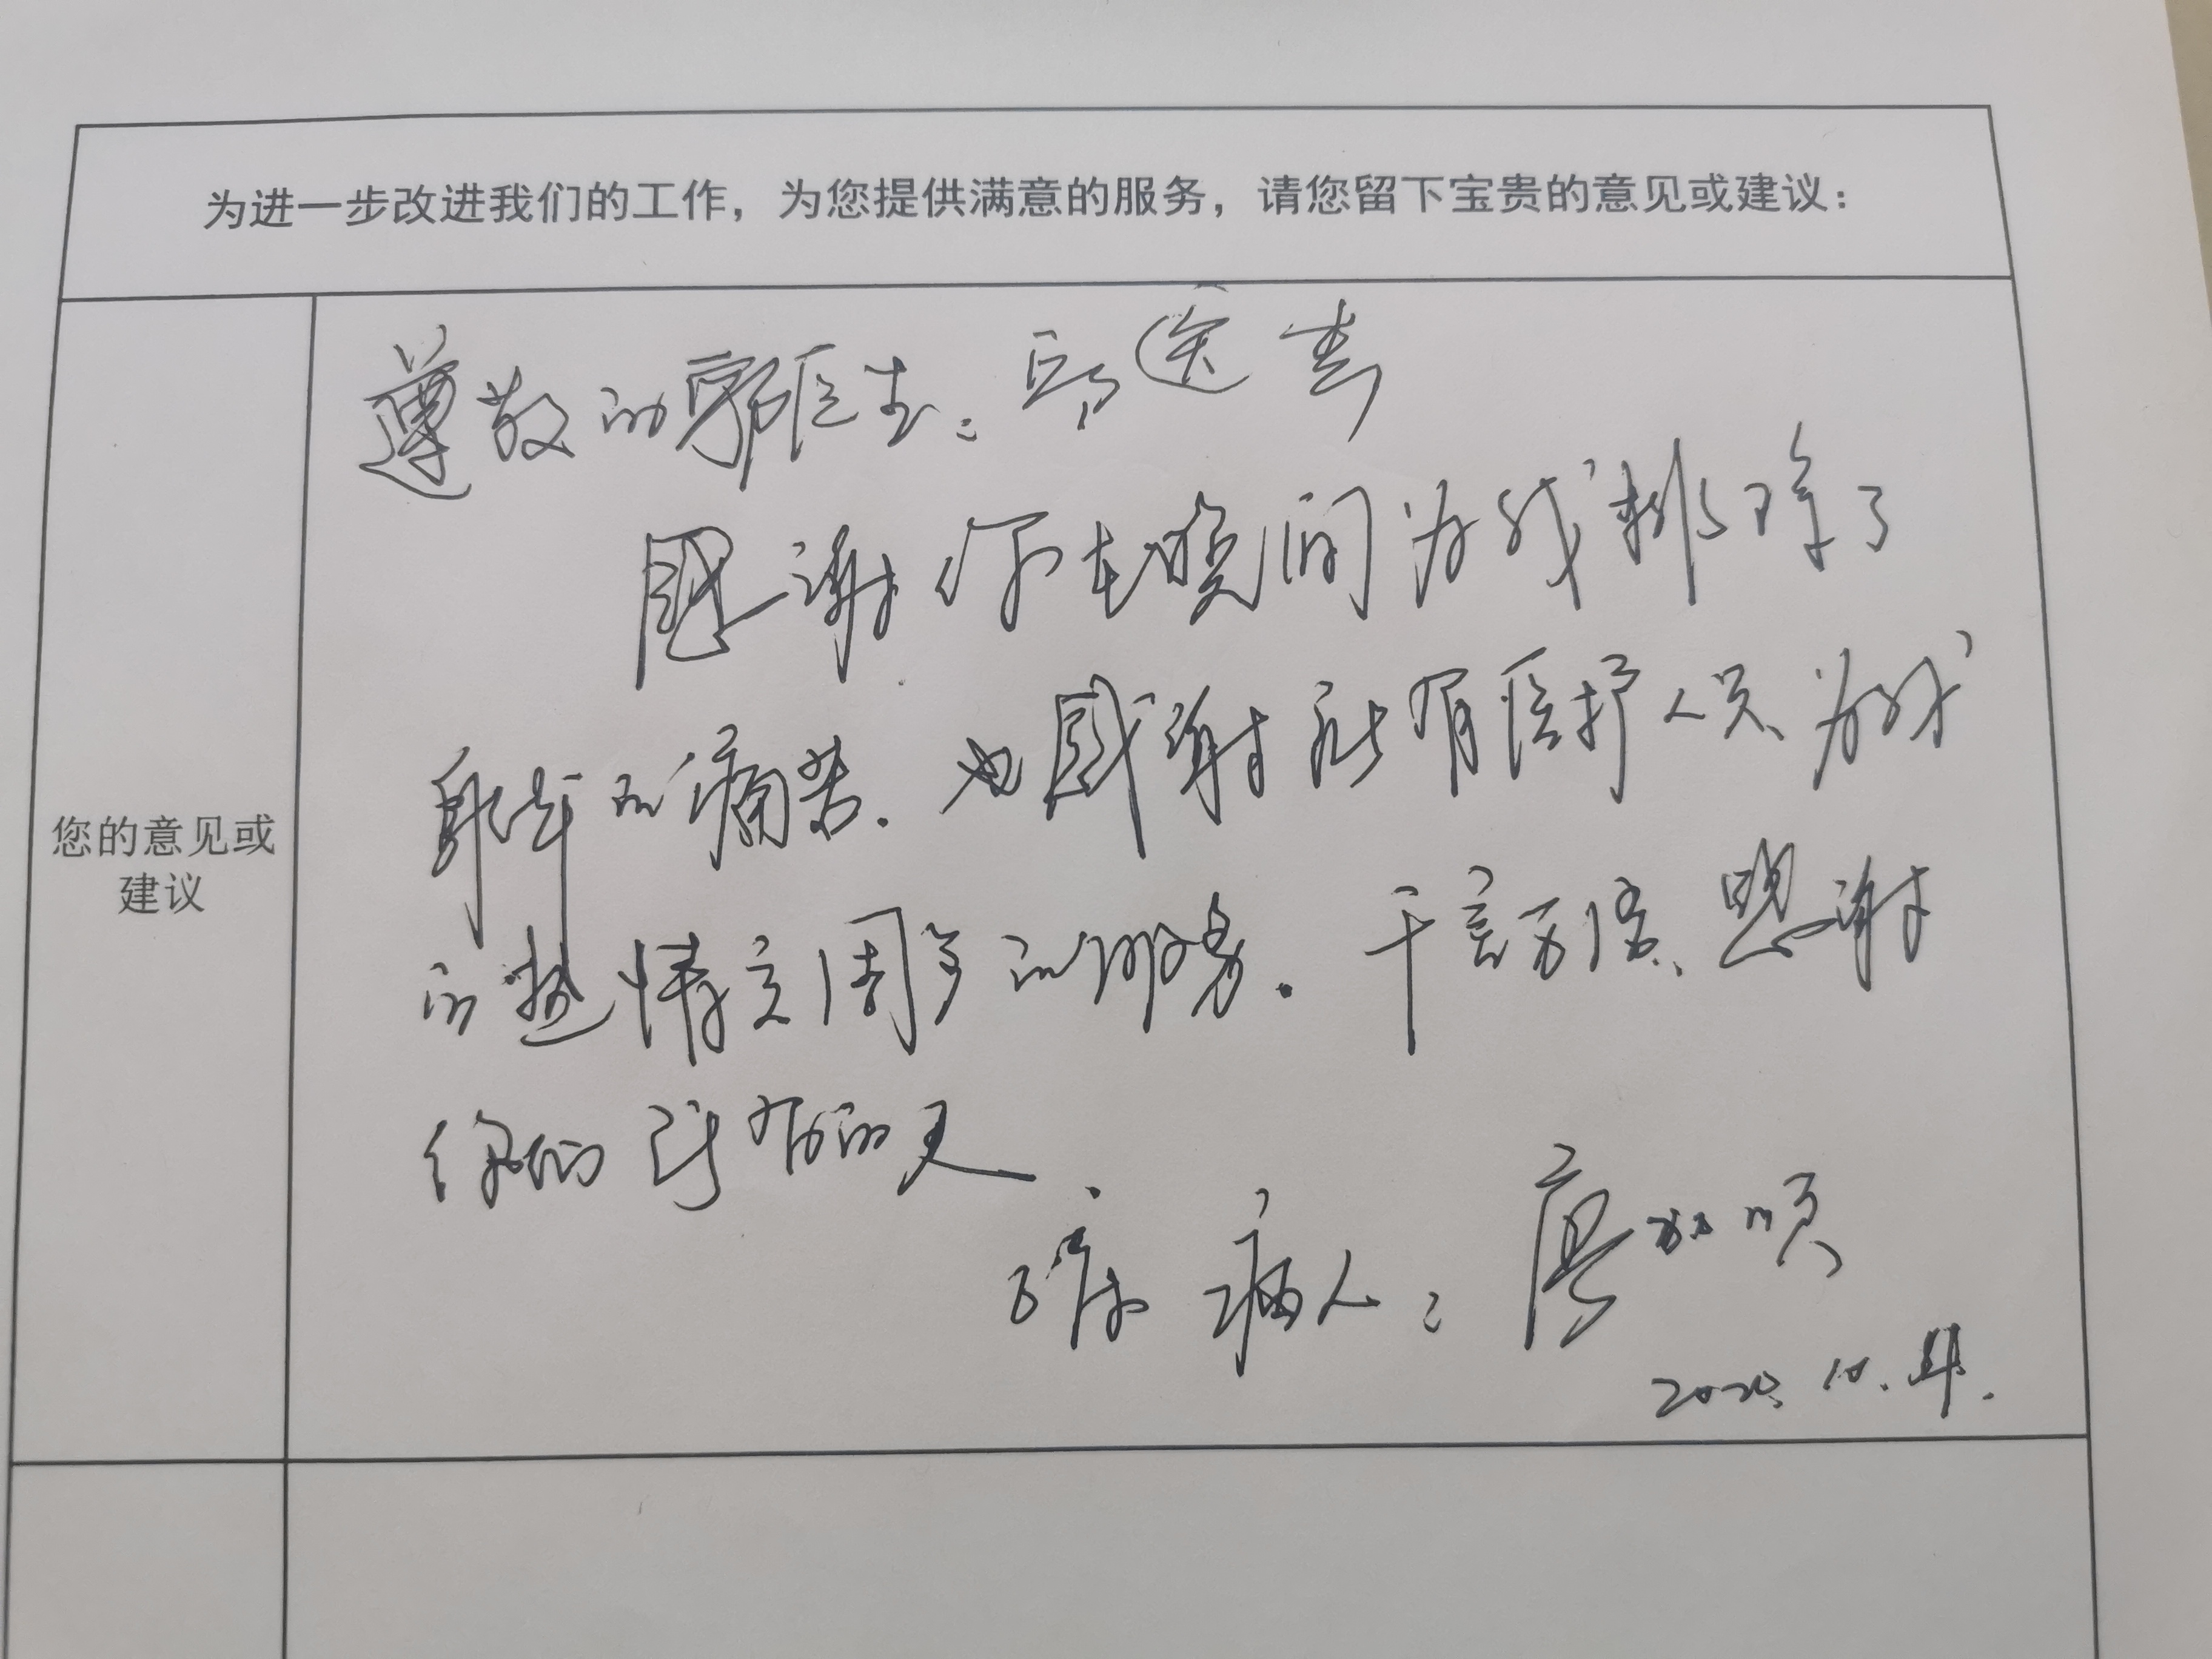 为进一步改进我们的工作，为您提供满意的服务，请您留下宝贵的意见或建议：
您的意见或
建议
尊敬的郭医生：邱
感谢你在晚间为我排除了
的痛苦.也感谢所有医护人员、为我
的热情 周 的服务.千言万语、感谢
你们所有的人.
病人：廖 顺